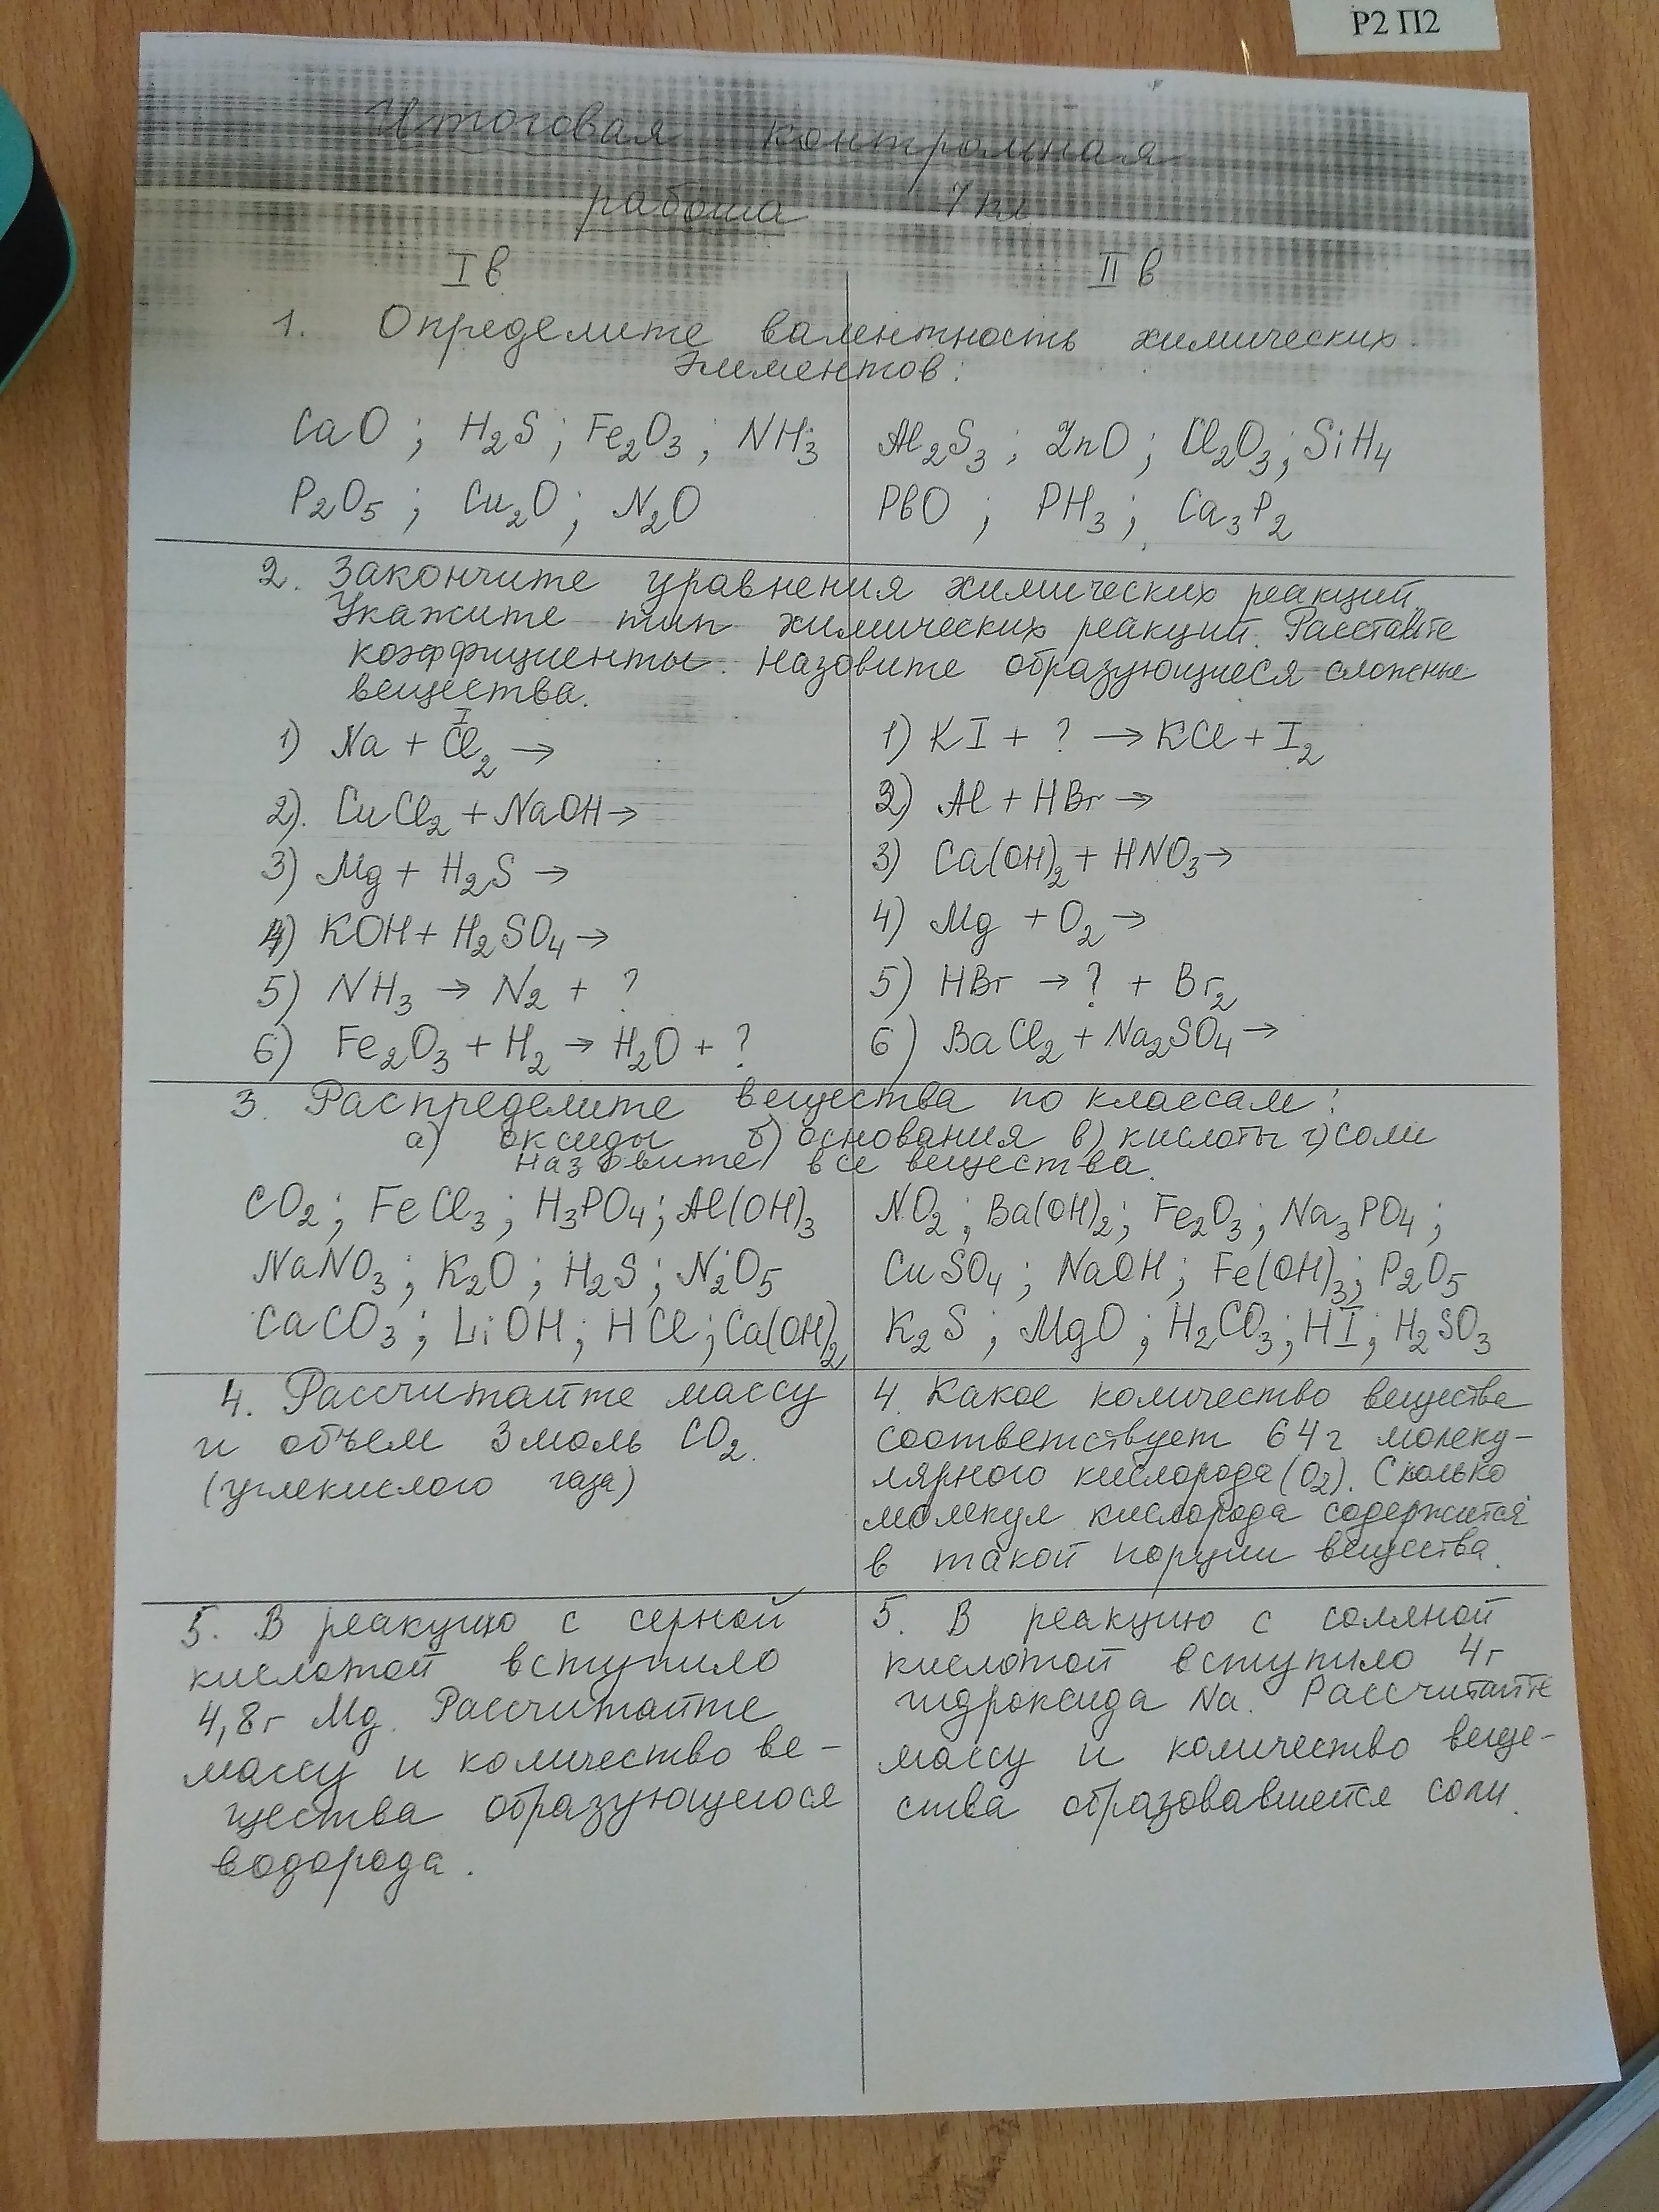 Р2 П2
Итоговая контрольная
работа 7 кл
I в
II в
1. Определите валентность химических
элементов:
CaO ; H2S ; Fe2O3 ; NH3
P2O5 ; Cu2O ; N2O
Al2S3 ; ZnO ; Cl2O3 ; SiH4
PbO ; PH3 ; Ca3P2
2. Закончите уравнения химических реакций.
Укажите тип химических реакций. Расставьте
коэффициенты. Назовите образующиеся сложные
вещества.
I
1) Na + Cl2 →
2). CuCl2 + NaOH →
3) Mg + H2S →
4) KOH + H2SO4 →
5) NH3 → N2 + ?
6) Fe2O3 + H2 → H2O + ?
1) KI + ? → KCl + I2
2) Al + HBr →
3) Ca(OH)2 + HNO3 →
4) Mg + O2 →
5) HBr → ? + Br2
6) BaCl2 + Na2SO4 →
3. Распределите вещества по классам:
а) оксиды б) основания в) кислоты г) соли
Назовите все вещества.
CO2 ; FeCl3 ; H3PO4 ; Al(OH)3
NaNO3 ; K2O ; H2S ; N2O5
CaCO3 ; LiOH ; HCl ; Ca(OH)2
NO2 ; Ba(OH)2 ; Fe2O3 ; Na3PO4 ;
CuSO4 ; NaOH ; Fe(OH)3 ; P2O5
K2S ; MgO ; H2CO3 ; HI ; H2SO3
4. Рассчитайте массу
и объем 3 моль CO2.
(углекислого газа)
4. Какое количество вещества
соответствует 64 г молеку-
лярного кислорода (O2). Сколько
молекул кислорода содержится
в такой порции вещества.
5. В реакцию с серной
кислотой вступило
4,8 г Mg. Рассчитайте
массу и количество ве-
щества образующегося
водорода.
5. В реакцию с соляной
кислотой вступило 4 г
гидроксида Na. Рассчитайте
массу и количество веще-
ства образовавшейся соли.